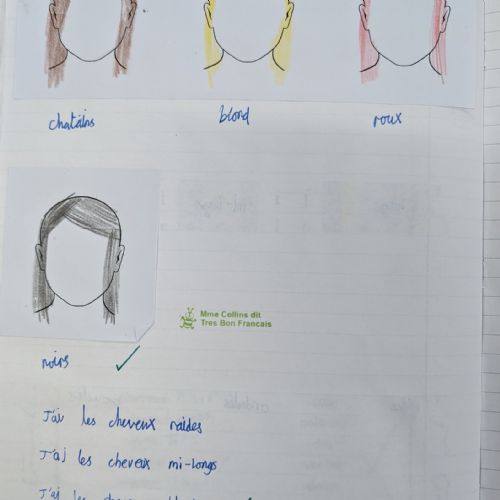 chatains
blond
roux
Mme Collins dit
Tres Bon Francais
noirs
J'ai les cheveux raides
J'aj les cheveux mi-longs
J'ai les